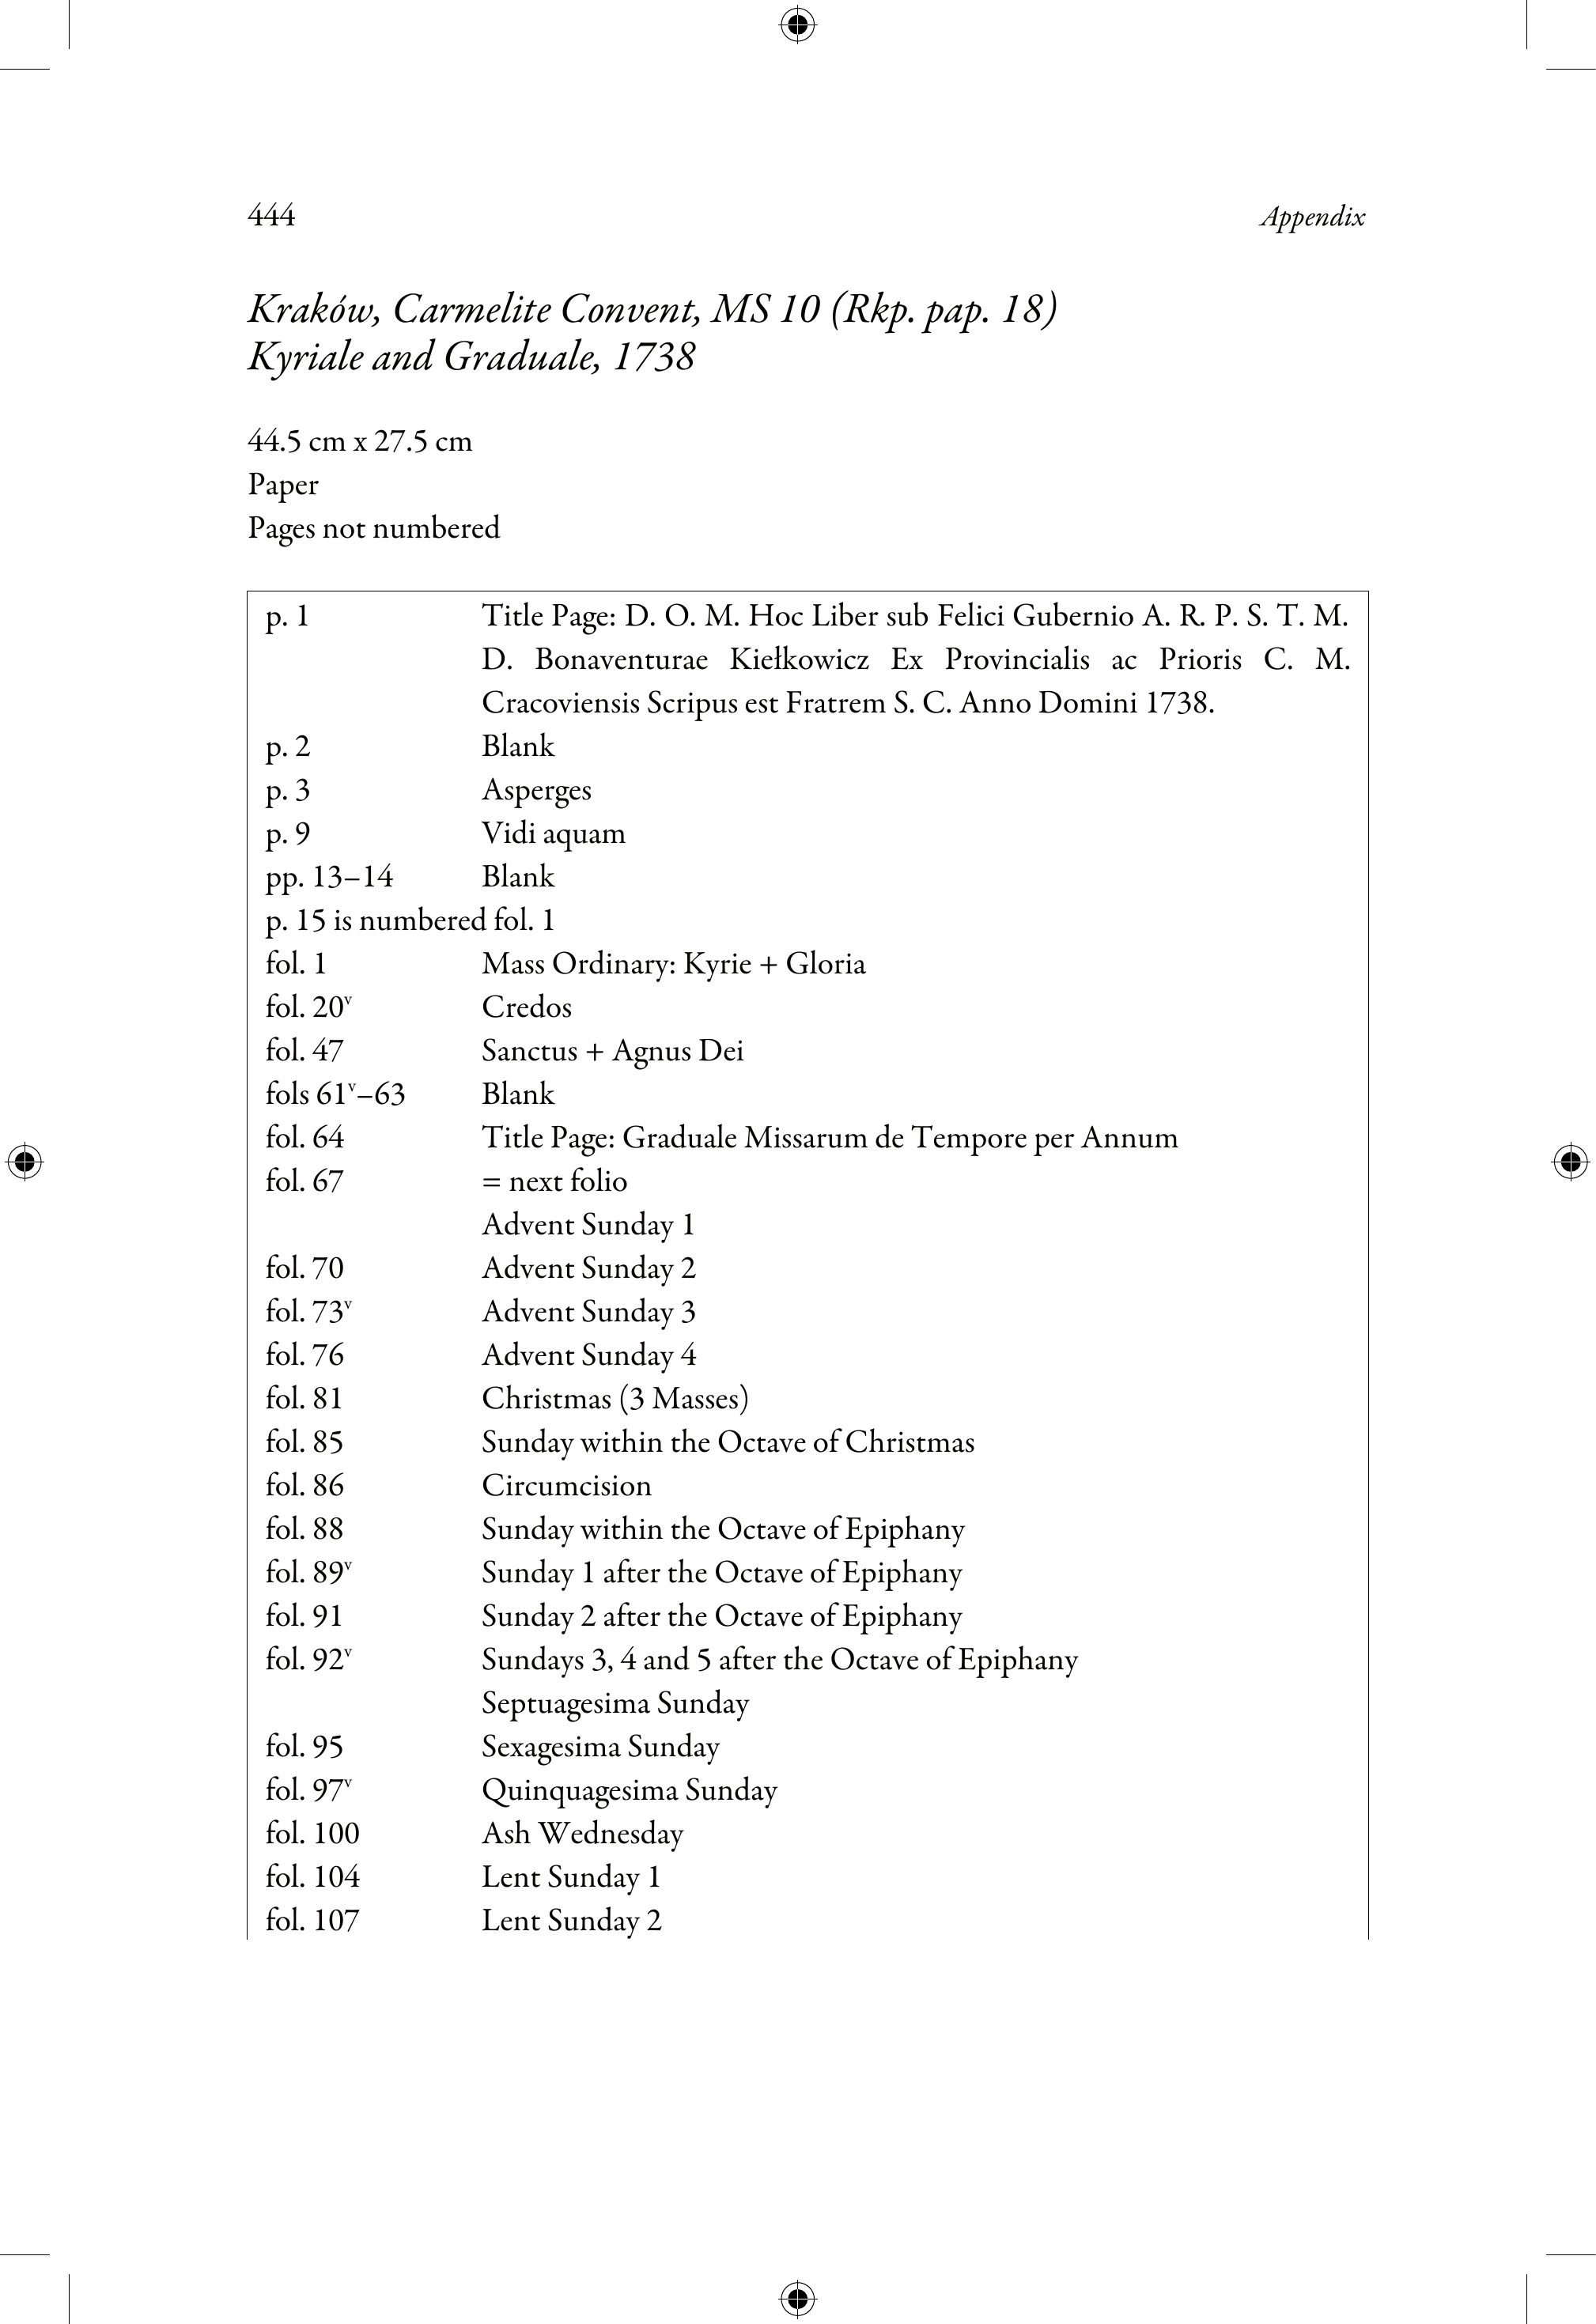 444 Appendix
Kraków, Carmelite Convent, MS 10 (Rkp. pap. 18)
Kyriale and Graduale, 1738
44.5 cm x 27.5 cm
Paper
Pages not numbered
p. 1 Title Page: D. O. M. Hoc Liber sub Felici Gubernio A. R. P. S. T. M.
D. Bonaventurae Kiełkowicz Ex Provincialis ac Prioris C. M.
Cracoviensis Scripus est Fratrem S. C. Anno Domini 1738.
p. 2 Blank
p. 3 Asperges
p. 9 Vidi aquam
pp. 13–14 Blank
p. 15 is numbered fol. 1
fol. 1 Mass Ordinary: Kyrie + Gloria
fol. 20ᵛ Credos
fol. 47 Sanctus + Agnus Dei
fols 61ᵛ–63 Blank
fol. 64 Title Page: Graduale Missarum de Tempore per Annum
fol. 67 = next folio
Advent Sunday 1
fol. 70 Advent Sunday 2
fol. 73ᵛ Advent Sunday 3
fol. 76 Advent Sunday 4
fol. 81 Christmas (3 Masses)
fol. 85 Sunday within the Octave of Christmas
fol. 86 Circumcision
fol. 88 Sunday within the Octave of Epiphany
fol. 89ᵛ Sunday 1 after the Octave of Epiphany
fol. 91 Sunday 2 after the Octave of Epiphany
fol. 92ᵛ Sundays 3, 4 and 5 after the Octave of Epiphany
Septuagesima Sunday
fol. 95 Sexagesima Sunday
fol. 97ᵛ Quinquagesima Sunday
fol. 100 Ash Wednesday
fol. 104 Lent Sunday 1
fol. 107 Lent Sunday 2